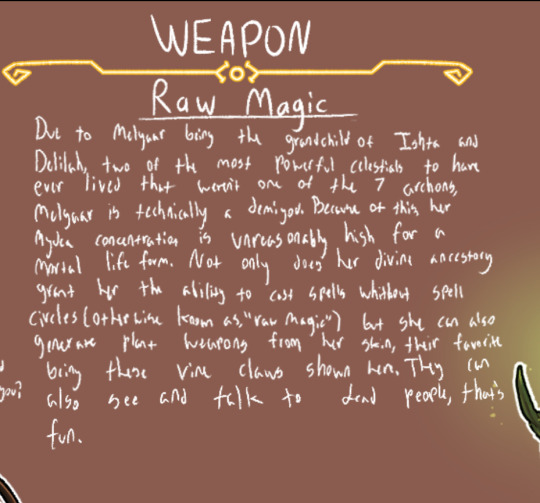 WEAPON
Raw Magic
Due to Melynar being the grandchild of Ishta and
Delilah, two of the most powerful celestials to have
ever lived that weren't one of the 7 archons,
Melynar is technically a demigod. Because of this her
concentration is unreasonably high for a
mortal life form. Not only does her divine ancestory
grant her the ability to cast spells whithout spell
circles (otherwise known as, "raw magic") but she can also
generate plant weapons from her skin, their favorite
being these vine claws shown here. They can
you? also see and talk to dead people, that's
fun.